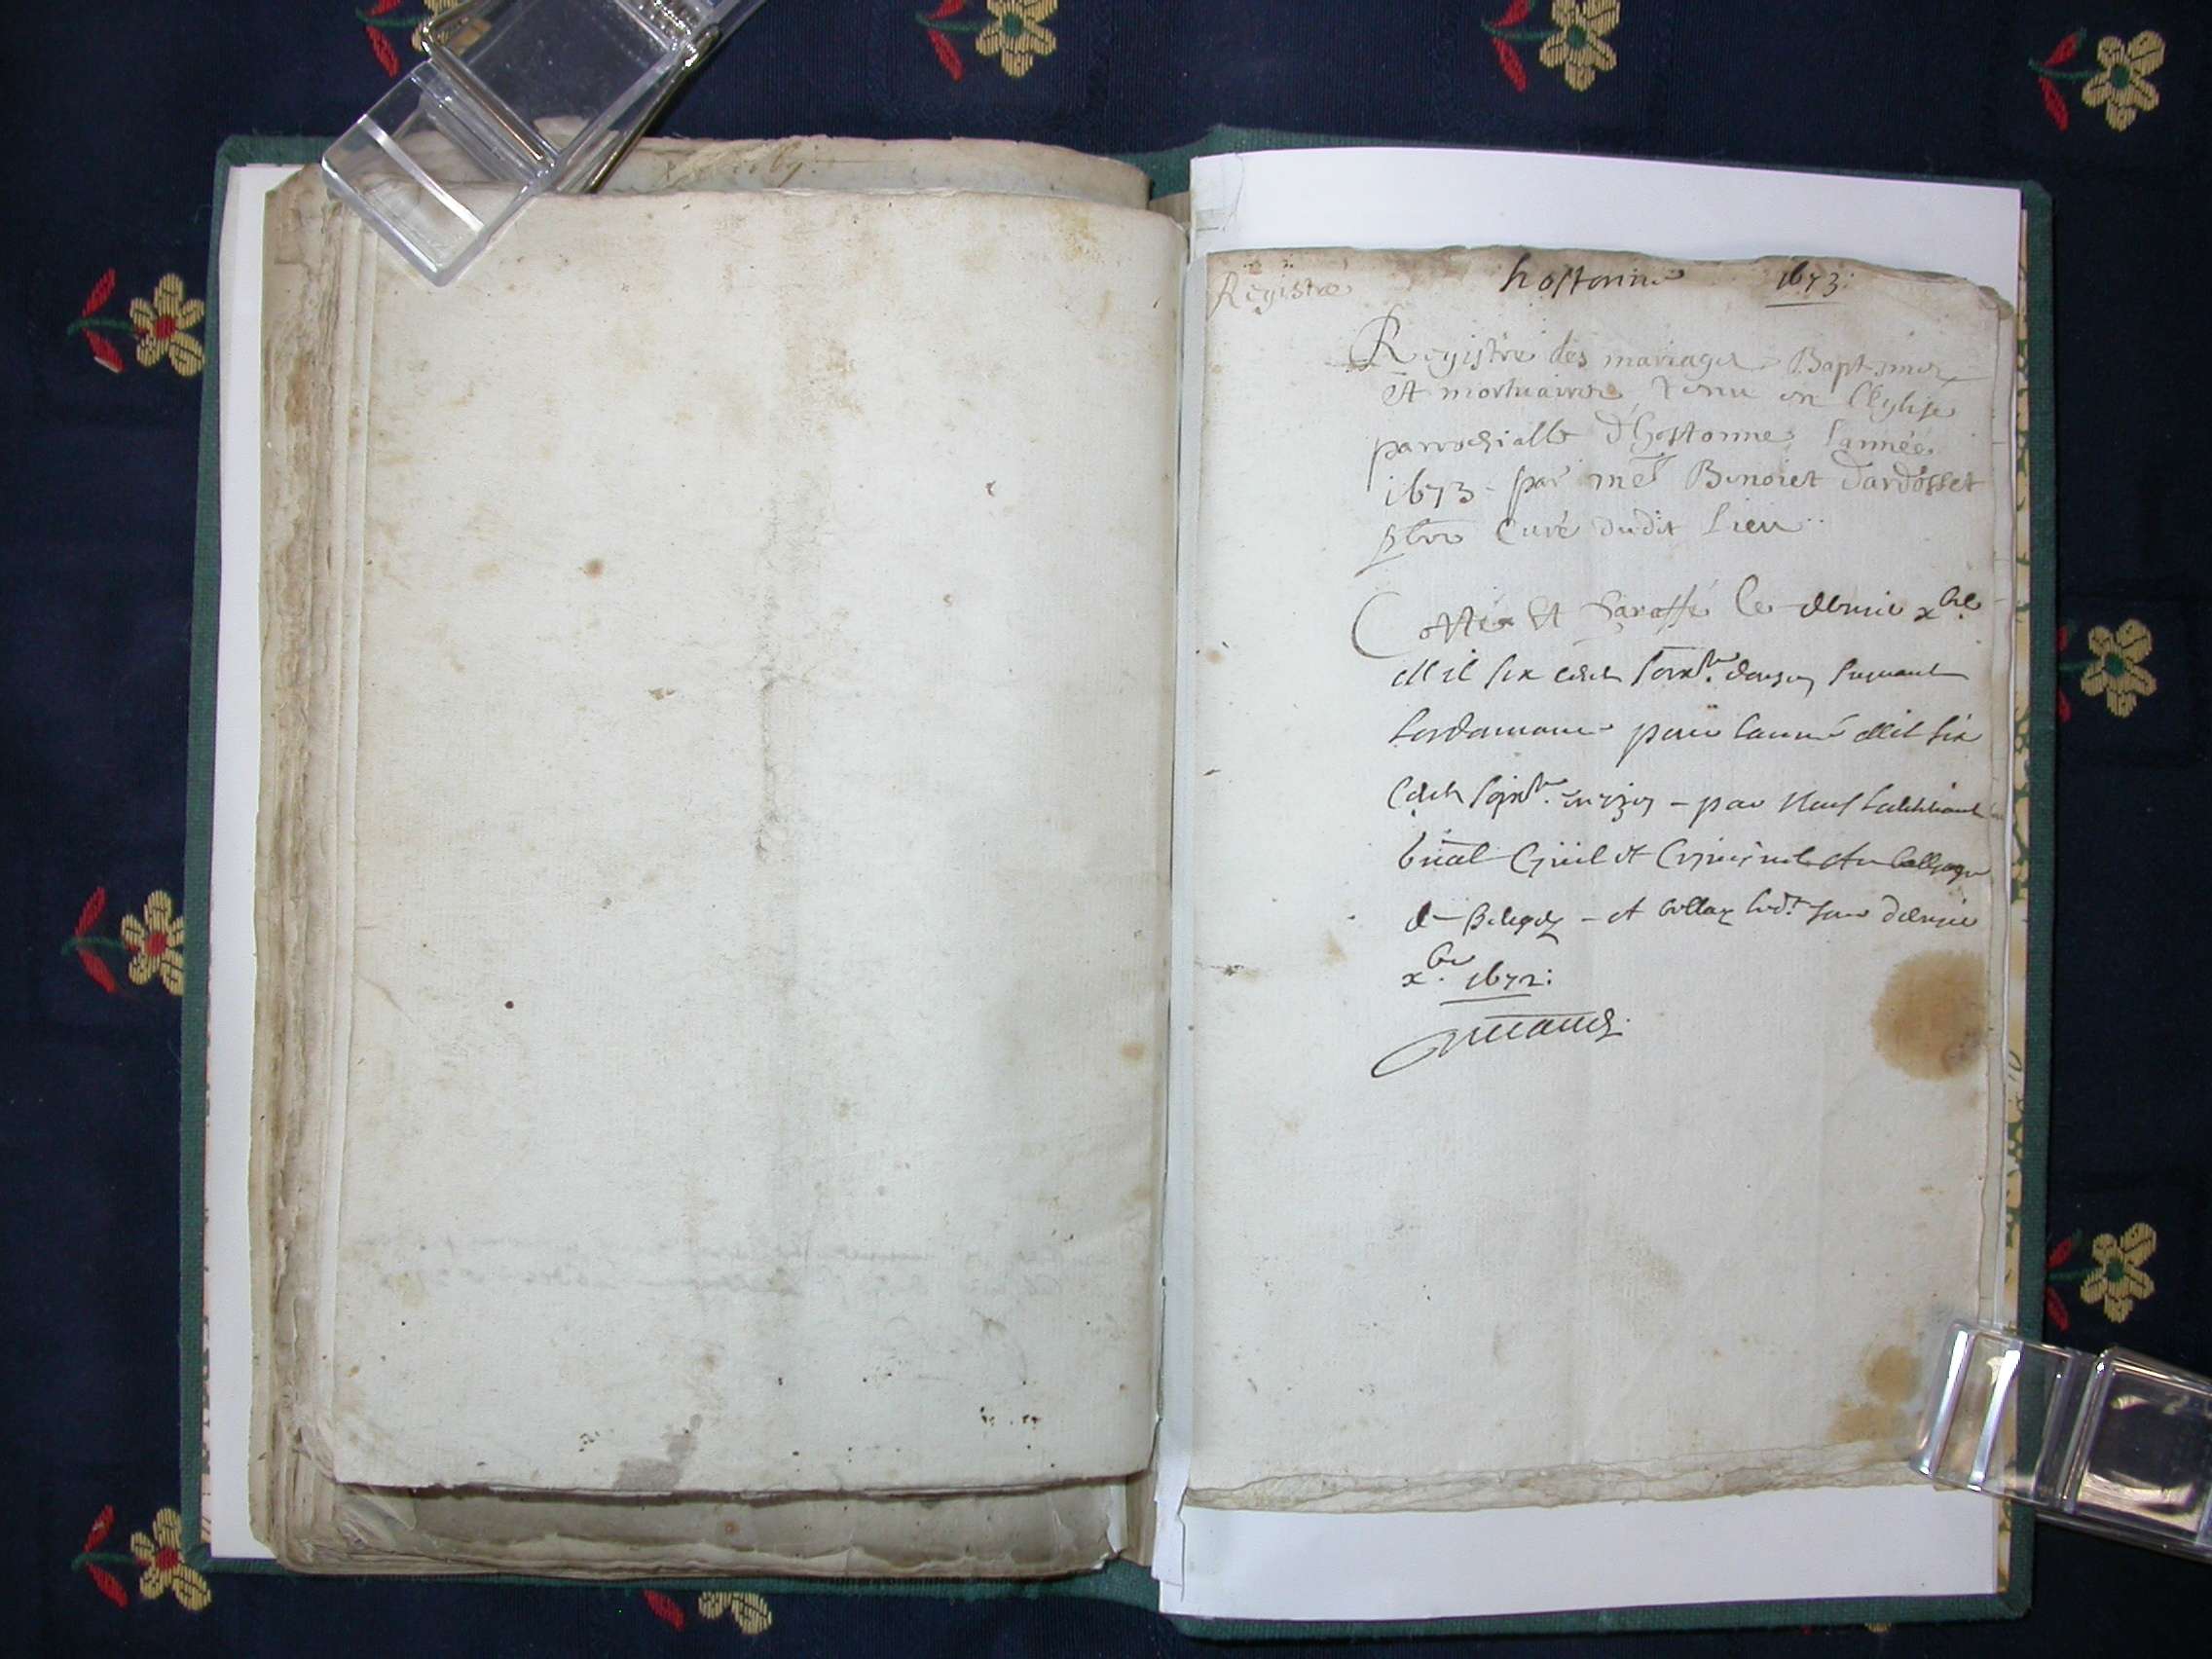 Registre hostonne 1673:
Registre des mariages Baptsmes
et mortuaires, tenu en l'Eglise
parrochialle d'hostonne, l'année
1673 - par mes^r Benoict Dardosset
pbre Curé dudit Lieu
Cotté et Paraffé le dernier x^bre
Mil six cents soix^te douze suivant
lordonnance pour lannée Mil six
Cents soix^te treize - par Nous lieutenant
Civil et Criminel Au balliage
de Bugey - et Bellay led^t Jour dernier
x^bre 1672: